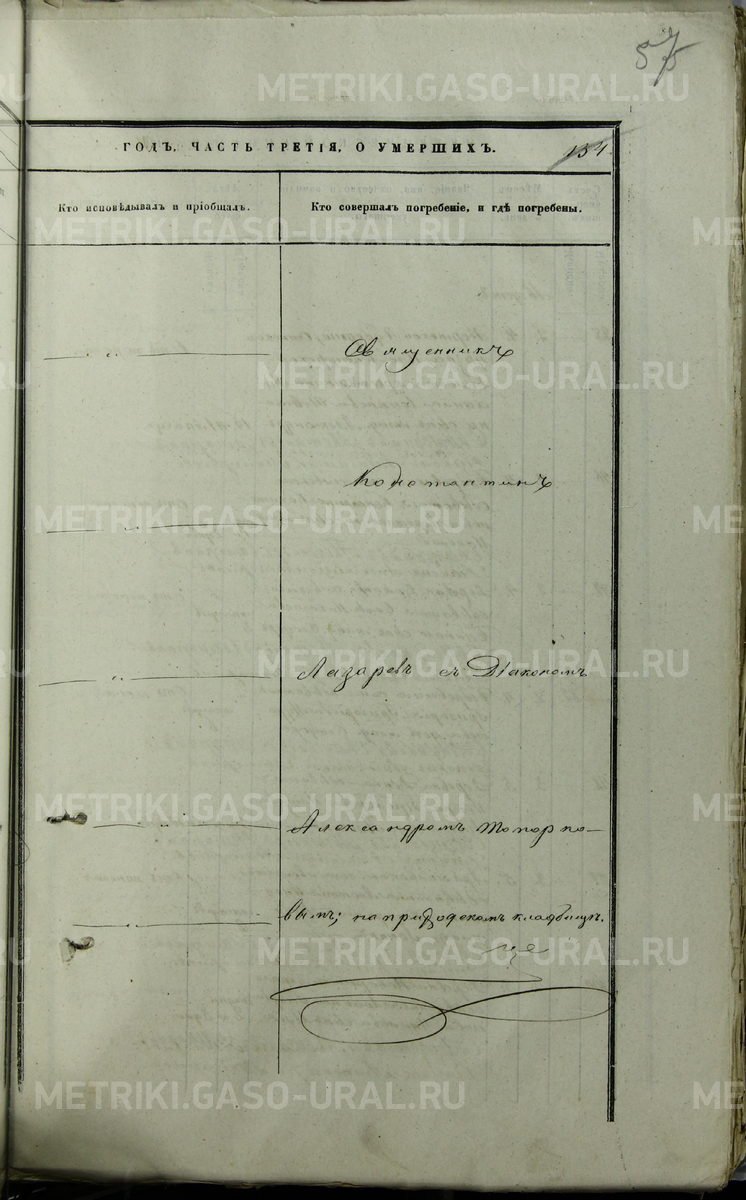 57
METRIKI.GASO-URAL.RU
ГОДЪ, ЧАСТЬ ТРЕТІЯ, О УМЕРШИХЪ.
154
Кто исповѣдывалъ и пріобщалъ.
Кто совершалъ погребеніе, и гдѣ погребены.
METRIKI.GASO-URAL.RU
Священникъ
METRIKI.GASO-URAL.RU
Константинъ
METRIKI.GASO-URAL.RU
Лазаревъ съ Діакономъ
METRIKI.GASO-URAL.RU
METRIKI.GASO-URAL.RU
Александромъ Топорко-
вымъ; на приходскомъ кладбищѣ.
ще
METRIKI.GASO-URAL.RU
METRIKI.GASO-URAL.RU